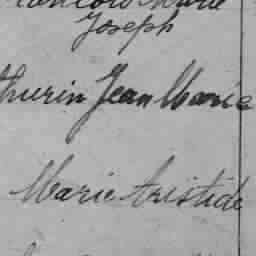 Marie
Joseph
thurin Jean Marie
Marie Aristide